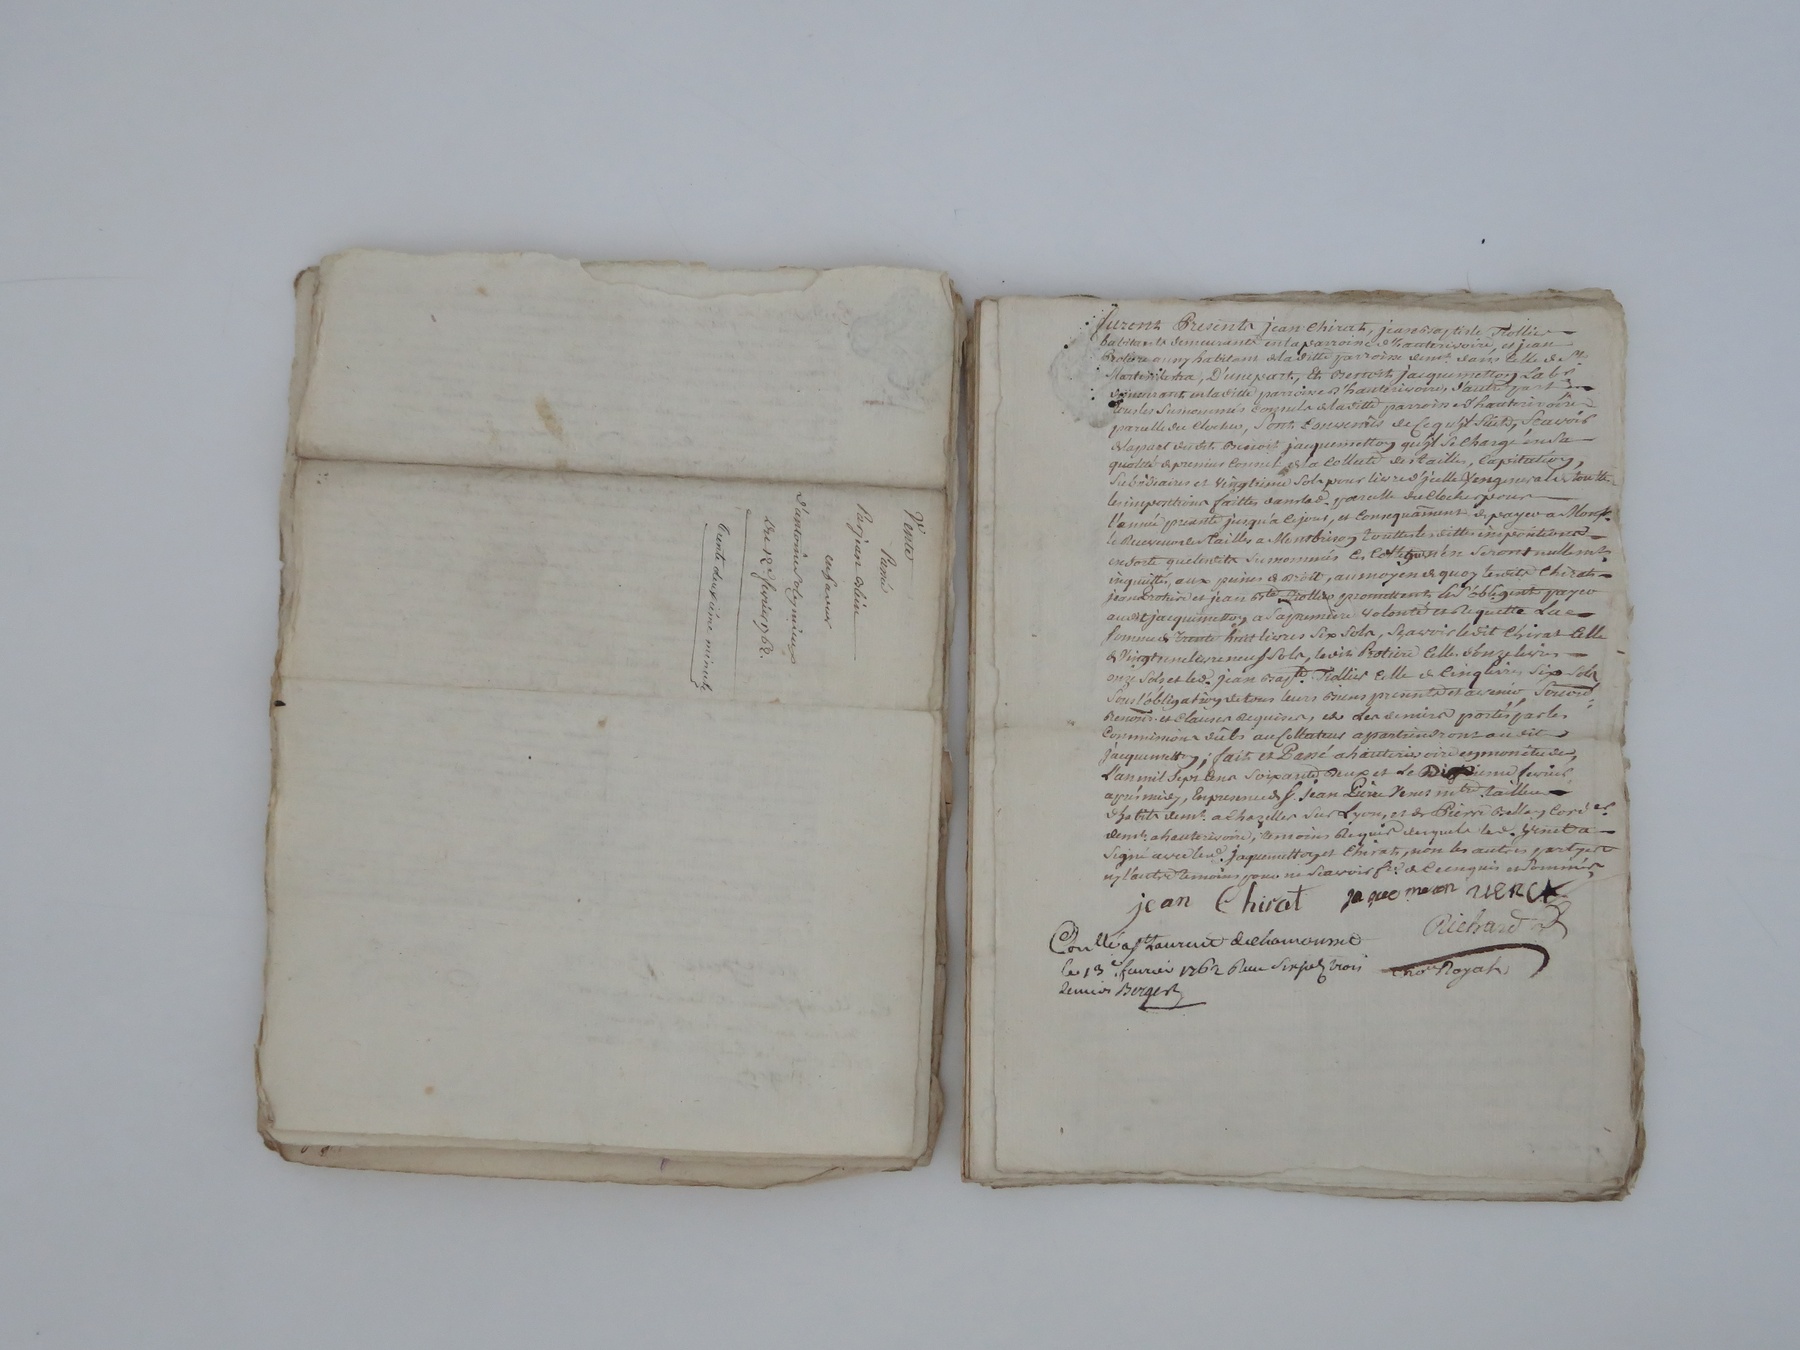 Vente
Passé
Par jean
en faveur
d'antoine
Du 12e. fevrier 1762.
trente deuxième minute
furent Presents jean Chirat, jean Baptiste Trollier
habitants demeurants en la parroisse d'hauterivoire, et jean
habitant de la ditte parroisse demt. dans celle de St.
Martin lestra, D'une part, Et Benoit jacquemetton Labr.
demeurant en la ditte parroisse d'hauterivoire, d'autre part
tous les susnommés consuls de la ditte parroisse d'hauterivoire
parcelle du Clocher, sont convenus de ce qu'il suit, Scavoir
de la part du dit Benoit jacquemetton qu'il se charge en sa
qualité de premier Consul de la Collecte des tailles, Capitation,
Subsidiaires et vingtieme sols pour livre d'icelle toutte
les impositions faittes dans lad. parcelle du Clocher pour
l'année presente jusqu'a ce jour, et consequament de payer a Monsr.
le Receveur des tailles a Montbrison touttes les dittes impositions
en sorte que les dits susnommés n'en seront nullemt.
inquiettés, aux peines de droit, au moyen de quoy lesdits Chirat
jean Protiere et jean Bte. Trollier promettent et s'obligent payer
audit jacquemetton a sa premiere volonté et Requette La
somme de trante huit livres six sols, scavoir ledit Chirat Celle
de vingt une livre neuf sols, ledit Protiere Celle d'onze livres
onze sols et led. jean Bapte. Trollier Celle de Cinq livres six sols
sous l'obligation de tous leurs biens presents et avenir
et Clauses Requises, et Les deniers portés par les
Commissions dûes au Collecteur apartiendront au dit
jacquemetton; fait et Passé a hauterivoire en mon étude,
L'an mil sept cens soixante deux et Le fevrier
aprés midy, En presence de s. jean Pierre Venet mtre. tailleur
d'habits demt. a Chazelles sur Lyon, et de Pierre
demt. a hauterivoire, temoins Requis desquels led. Venet a
signé avec led. jacquemetton et Chirat, non les autres parties
ny l'autre temoins pour ne scavoir de ce enquis et sommés
jean Chirat jaquemeton VENET
Richard
Conllé a St Laurent de chamousset
le 13e. fevrier 1762 Reçu six sols trois
deniers Berger
nore Royal